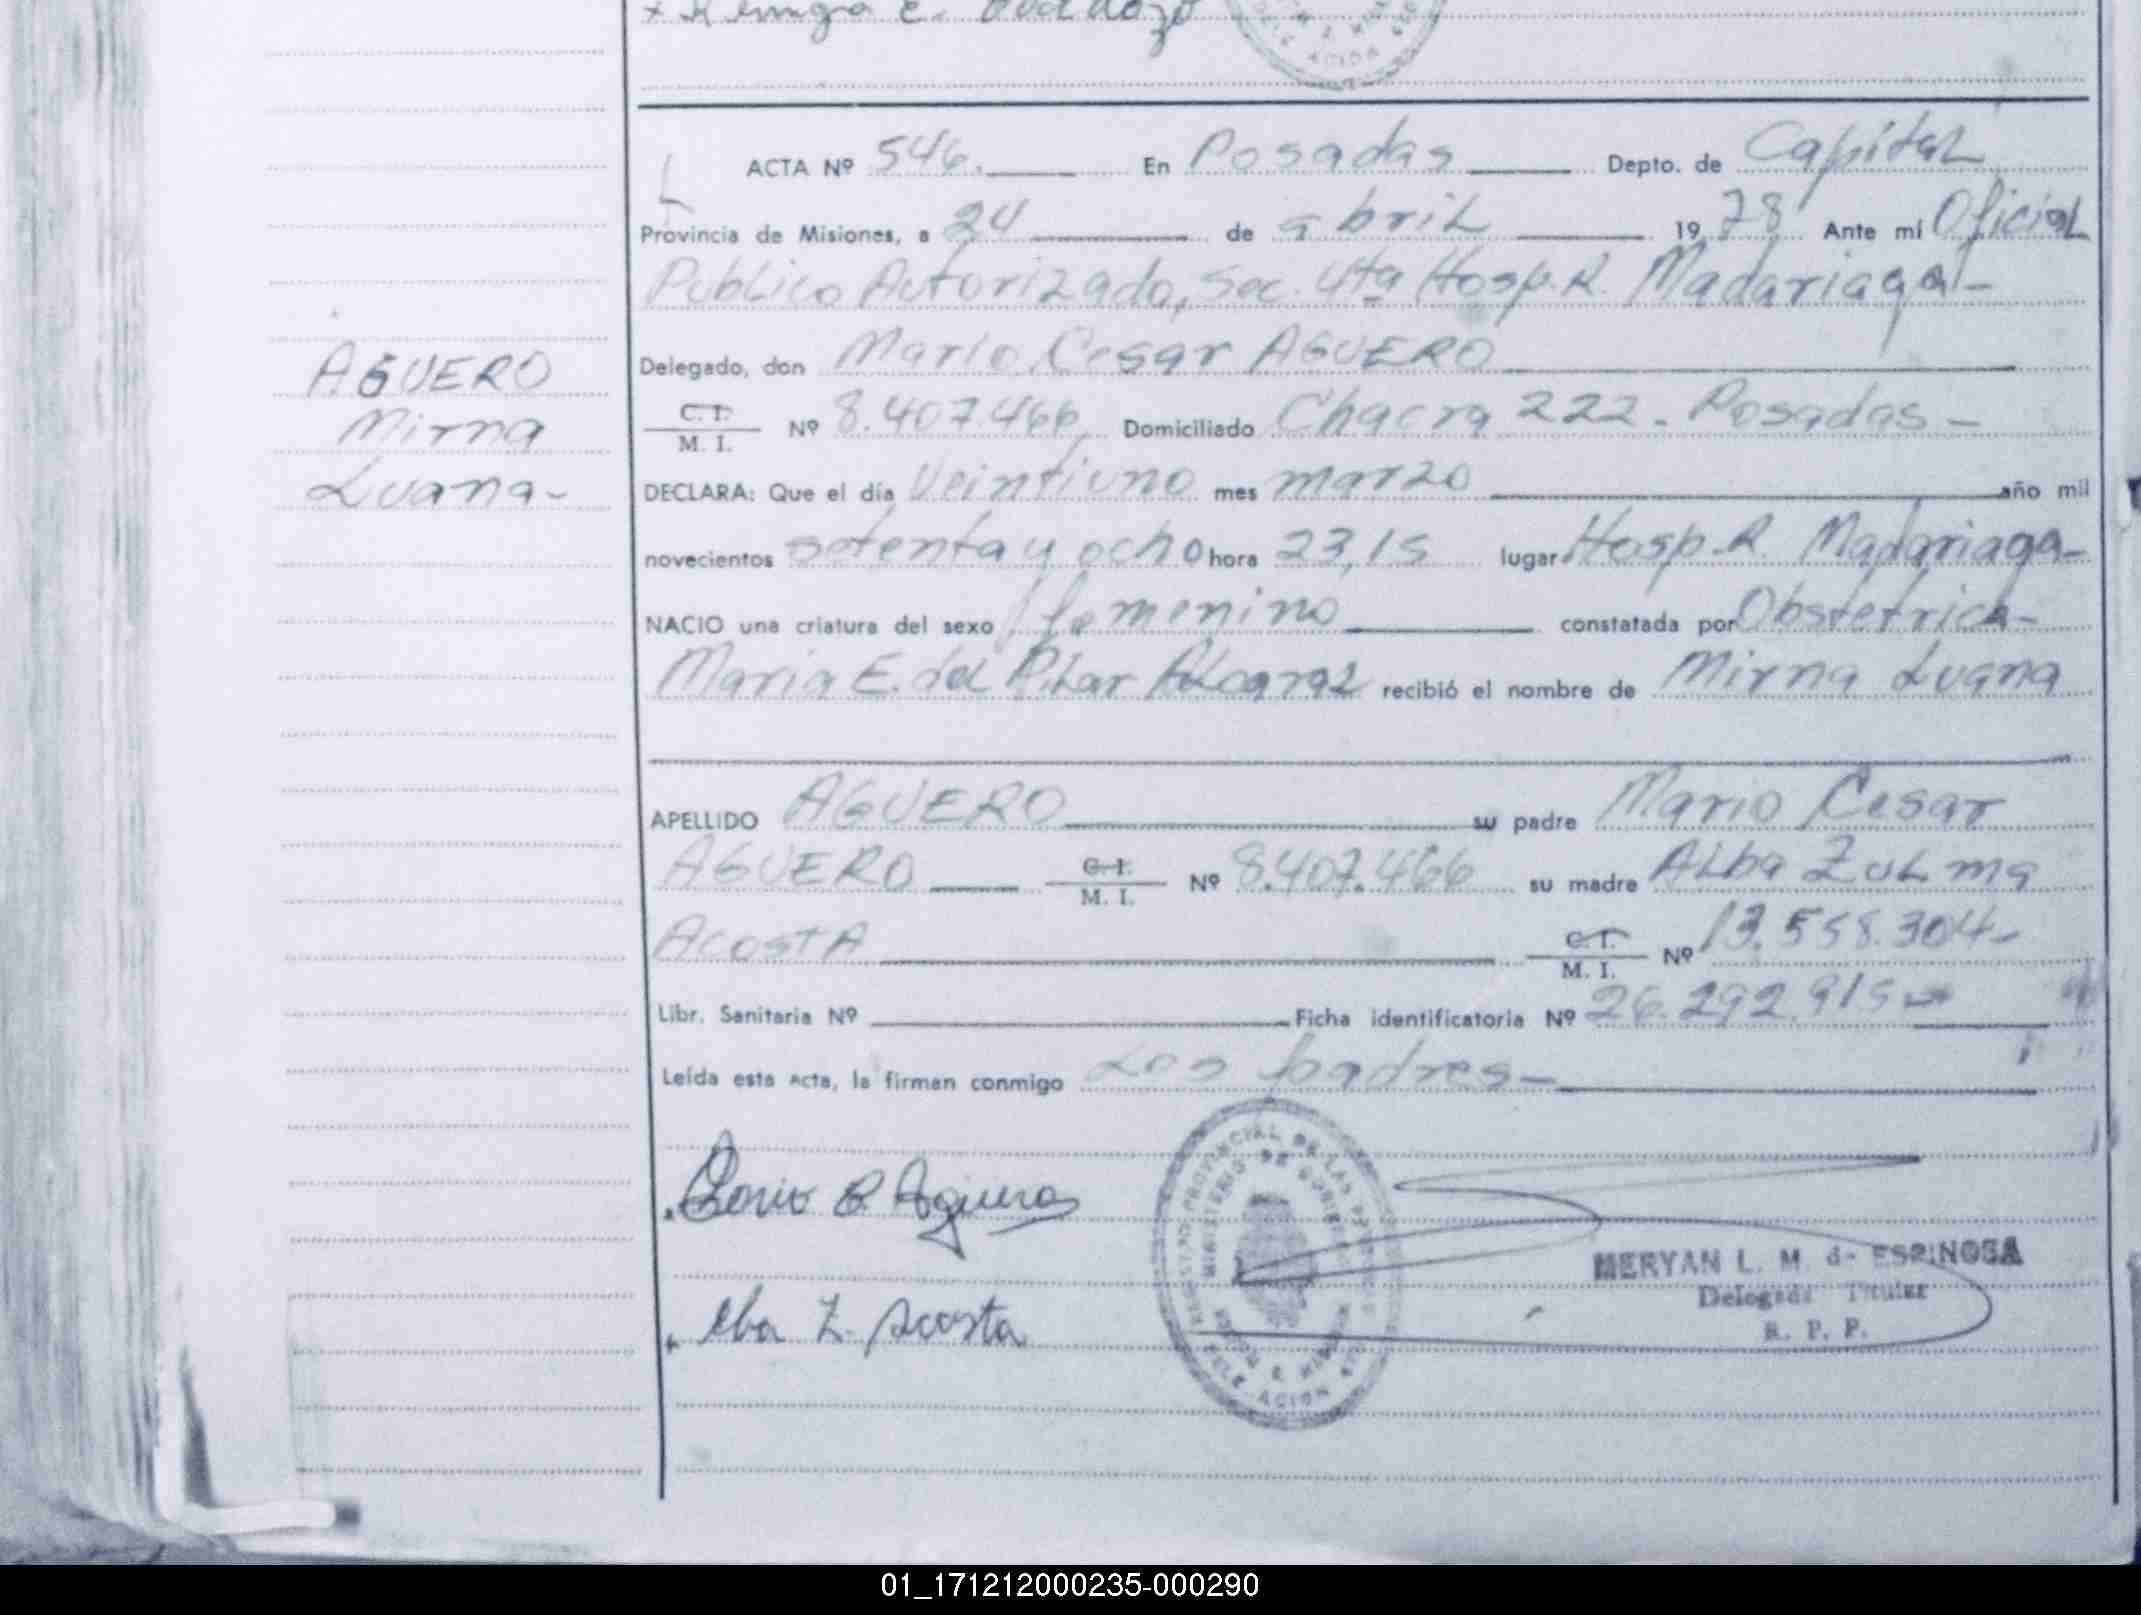 ACTA Nº 546. En Posadas Depto. de Capital
Provincia de Misiones, a 24 de abril 1978 Ante mí Oficial
Publico Autorizado, Sec. 4ta Hosp. R. Madariaga -
AGUERO
Mirna
Luana-
Delegado, don Mario Cesar AGUERO
C.I. M. I. Nº 8.407.466, Domiciliado Chacra 222 - Posadas -
DECLARA: Que el día Veintiuno mes marzo año mil
novecientos setenta y ocho hora 23,15 lugar Hosp. R. Madariaga-
NACIO una criatura del sexo femenino constatada por Obstetrica-
Maria E. del Pilar recibió el nombre de Mirna Luana
APELLIDO AGUERO su padre Mario Cesar
AGUERO C.I. M. I. Nº 8.407.466 su madre Alba Zulma
Acosta C.I. M. I. Nº 13.558.304-
Libr. Sanitaria Nº Ficha identificatoria Nº 26.292.915
Leída esta acta, la firman conmigo Los padres-
C. Aguero
Z. Acosta
REGISTRO PROVINCIAL DE LAS PERSONAS
MINISTERIO DE GOBIERNO
MERYAN L. M. de ESPINOSA
Delegada Titular
R. P. P.
01_171212000235-000290